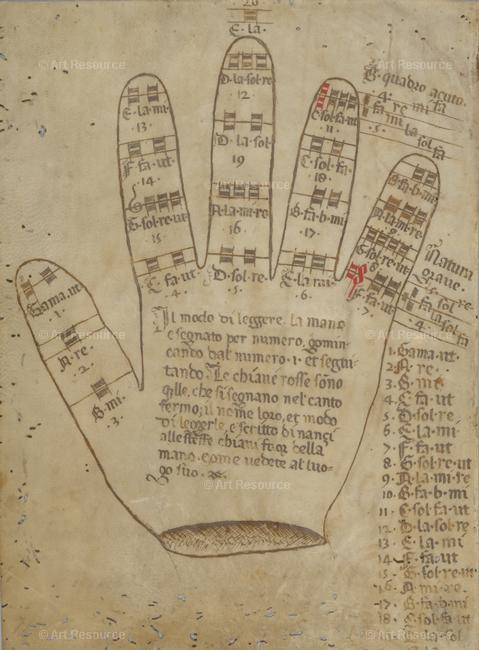 20
E·la·
E·la·mi·
·13·
F·fa·ut·
·14·
G·sol·re·ut
15·
C·fa·ut·
·4·
D·la·sol·re
·12·
D·la·sol·
19
A·la·mi·re
·16·
D·sol·re·
·5·
C·sol·fa·ut
·11·
C·sol·fa·
·18·
B·fa·b·mi
·17·
E·la·mi·
·6·
B·fa·b·mi
A·la·mi·re
9
G·sol·re·ut
8
F·fa·ut·
·7·
Gama·ut·
·1·
A·re·
·2·
B·mi·
·3·
B·quadro acuto·
·4·
fa re mi fa
·5· mi la sol fa
Natura
grave·
fa sol re
·4· la sol fa
Il modo di leggere la mano
e segnato per numero, comin
cando dal numero ·1· et segui
tando· Le chiavi rosse sono
qlle, che si segnano nel canto
fermo; il nome loro, et modo
di leggerle, e scritto di nanzi
alle stesse chiavi fuor della
mano, come vedete al luo-
go suo·
1· Gama·ut·
2· A·re·
3· B·mi·
4· C·fa·ut
5· D·sol·re·
6· E·la·mi
7· F·fa·ut
8· G·sol·re·ut
9· A·la·mi·re
10· B·fa·b·mi
11· C·sol·fa·ut
12· D·la·sol·re
13· E·la·mi
14· F·fa·ut
15· G·sol·re·ut
·16· A·mi·re·
·17· B·fa·b·mi
18· C·sol·fa·ut
la·sol
© Art Resource
© Art Resource
© Art Resource
© Art Resource
© Art Resource
© Art Resource
© Art Resource
© Art Resource